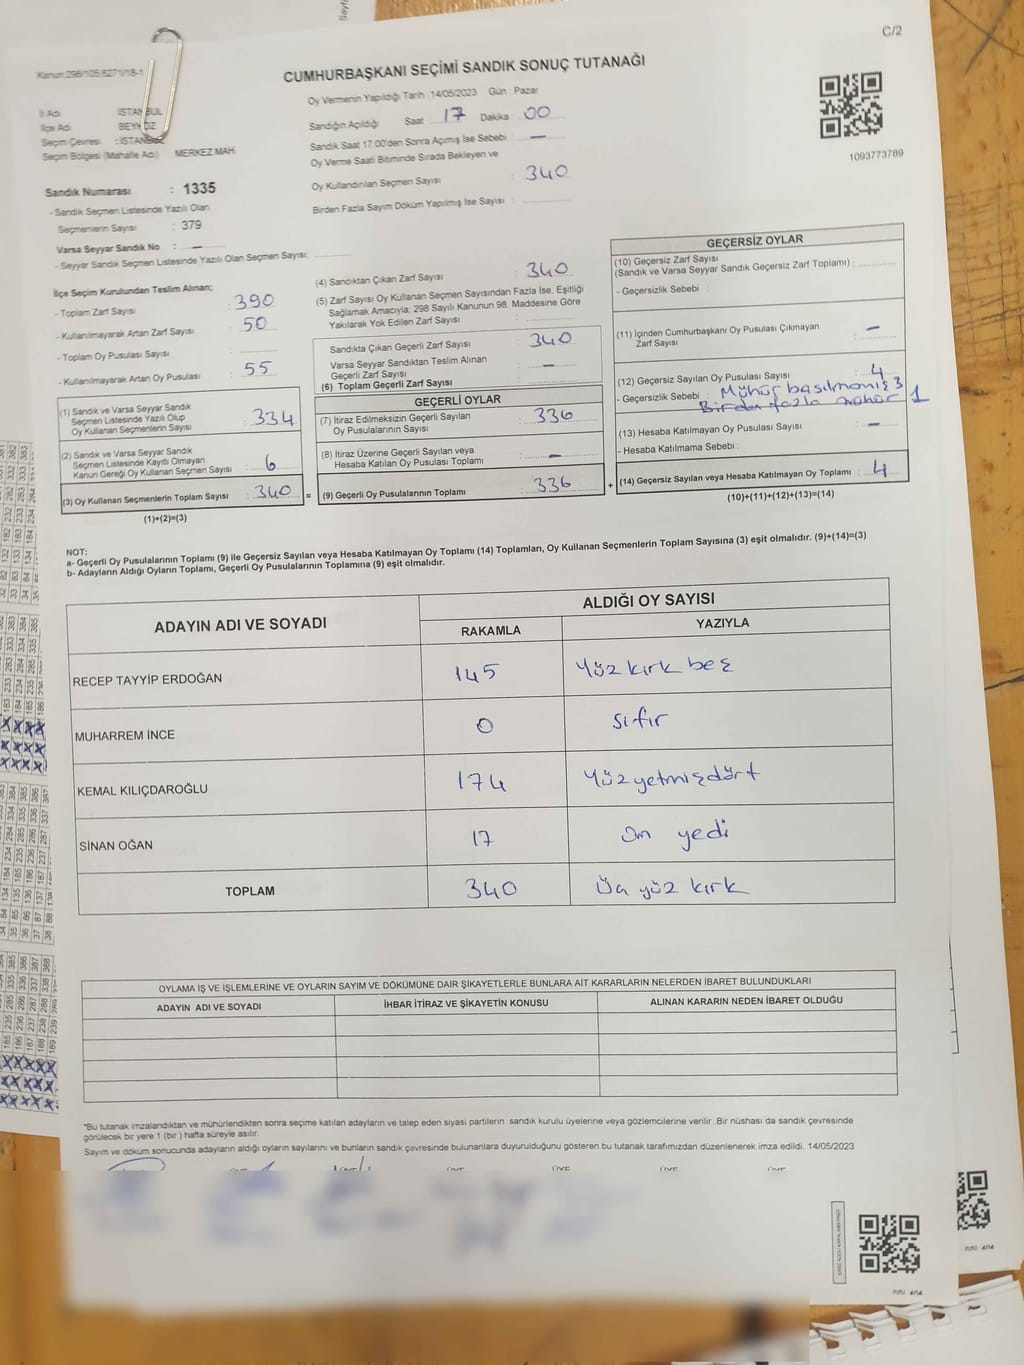 C/2
Kanun:298/105,6271/18-1
CUMHURBAŞKANI SEÇİMİ SANDIK SONUÇ TUTANAĞI
Oy Vermenin Yapıldığı Tarih :14/05/2023 Gün : Pazar
İl Adı : İSTANBUL
İlçe Adı : BEYKOZ
Seçim Çevresi : İSTANBUL
Seçim Bölgesi (Mahalle Adı) : MERKEZ MAH.
Sandığın Açıldığı Saat 17 Dakika 00
Sandık Saat 17:00'den Sonra Açımış İse Sebebi : —
Oy Verme Saati Bitiminde Sırada Bekleyen ve
Oy Kullandırılan Seçmen Sayısı : 340
Birden Fazla Sayım Döküm Yapılmış İse Sayısı :
1093773789
Sandık Numarası : 1335
- Sandık Seçmen Listesinde Yazılı Olan
Seçmenlerin Sayısı : 379
Varsa Seyyar Sandık No : —
- Seyyar Sandık Seçmen Listesinde Yazılı Olan Seçmen Sayısı:
İlçe Seçim Kurulundan Teslim Alınan;
- Toplam Zarf Sayısı : 390
- Kullanılmayarak Artan Zarf Sayısı : 50
- Toplam Oy Pusulası Sayısı :
- Kullanılmayarak Artan Oy Pusulası : 55
(1) Sandık ve Varsa Seyyar Sandık
Seçmen Listesinde Yazılı Olup
Oy Kullanan Seçmenlerin Sayısı : 334
(2) Sandık ve Varsa Seyyar Sandık
Seçmen Listesinde Kayıtlı Olmayan
Kanun Gereği Oy Kullanan Seçmen Sayısı : 6
(3) Oy Kullanan Seçmenlerin Toplam Sayısı : 340 =
(1)+(2)=(3)
(4) Sandıktan Çıkan Zarf Sayısı : 340
(5) Zarf Sayısı Oy Kullanan Seçmen Sayısından Fazla İse, Eşitliği
Sağlamak Amacıyla; 298 Sayılı Kanunun 98. Maddesine Göre
Yakılarak Yok Edilen Zarf Sayısı :
Sandıkta Çıkan Geçerli Zarf Sayısı : 340
Varsa Seyyar Sandıktan Teslim Alınan
Geçerli Zarf Sayısı : —
(6) Toplam Geçerli Zarf Sayısı :
GEÇERLİ OYLAR
(7) İtiraz Edilmeksizin Geçerli Sayılan
Oy Pusulalarının Sayısı : 336
(8) İtiraz Üzerine Geçerli Sayılan veya
Hesaba Katılan Oy Pusulası Toplamı : —
(9) Geçerli Oy Pusulalarının Toplamı : 336 +
GEÇERSİZ OYLAR
(10) Geçersiz Zarf Sayısı
(Sandık ve Varsa Seyyar Sandık Geçersiz Zarf Toplamı) :
- Geçersizlik Sebebi :
(11) İçinden Cumhurbaşkanı Oy Pusulası Çıkmayan
Zarf Sayısı : —
(12) Geçersiz Sayılan Oy Pusulası Sayısı : 4
- Geçersizlik Sebebi : Mühür basılmamış 3
Birden fazla mühür 1
(13) Hesaba Katılmayan Oy Pusulası Sayısı : —
- Hesaba Katılmama Sebebi :
(14) Geçersiz Sayılan veya Hesaba Katılmayan Oy Toplamı : 4
(10)+(11)+(12)+(13)=(14)
NOT:
a- Geçerli Oy Pusulalarının Toplamı (9) ile Geçersiz Sayılan veya Hesaba Katılmayan Oy Toplamı (14) Toplamları, Oy Kullanan Seçmenlerin Toplam Sayısına (3) eşit olmalıdır. (9)+(14)=(3)
b- Adayların Aldığı Oyların Toplamı, Geçerli Oy Pusulalarının Toplamına (9) eşit olmalıdır.
ADAYIN ADI VE SOYADI ALDIĞI OY SAYISI
RAKAMLA YAZIYLA
RECEP TAYYİP ERDOĞAN 145 Yüz kırk beş
MUHARREM İNCE 0 sıfır
KEMAL KILIÇDAROĞLU 174 Yüzyetmişdört
SİNAN OĞAN 17 On yedi
TOPLAM 340 Üç yüz kırk
OYLAMA İŞ VE İŞLEMLERİNE VE OYLARIN SAYIM VE DÖKÜMÜNE DAİR ŞİKAYETLERLE BUNLARA AİT KARARLARIN NELERDEN İBARET BULUNDUKLARI
ADAYIN ADI VE SOYADI İHBAR İTİRAZ VE ŞİKAYETİN KONUSU ALINAN KARARIN NEDEN İBARET OLDUĞU
*Bu tutanak imzalandıktan ve mühürlendikten sonra seçime katılan adayların ve talep eden siyasi partilerin sandık kurulu üyelerine veya gözlemcilerine verilir. Bir nüshası da sandık çevresinde
görülecek bir yere 1 (bir ) hafta süreyle asılır.
Sayım ve döküm sonucunda adayların aldığı oyların sayılarını ve bunların sandık çevresinde bulunanlara duyurulduğunu gösteren bu tutanak tarafımızdan düzenlenerek imza edildi. 14/05/2023